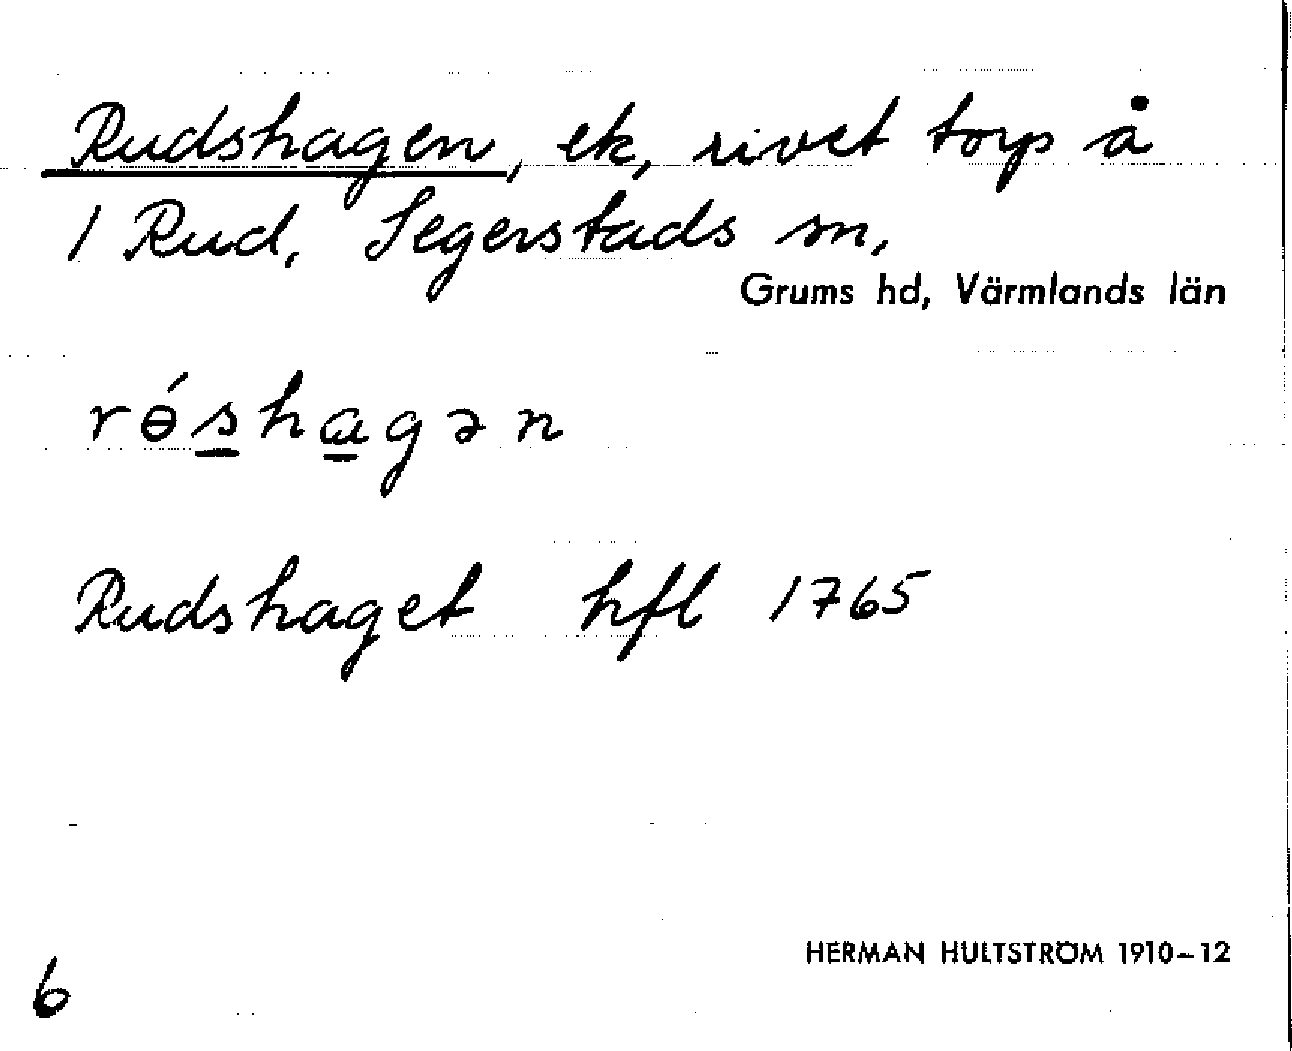 Rudshagen, ek, rivet torp å
1 Rud, Segerstads sn,
Grums hd, Värmlands län
rɵ́s̲ha̲gən
Rudshaget hfl 1765
HERMAN HULTSTRÖM 1910–12
6